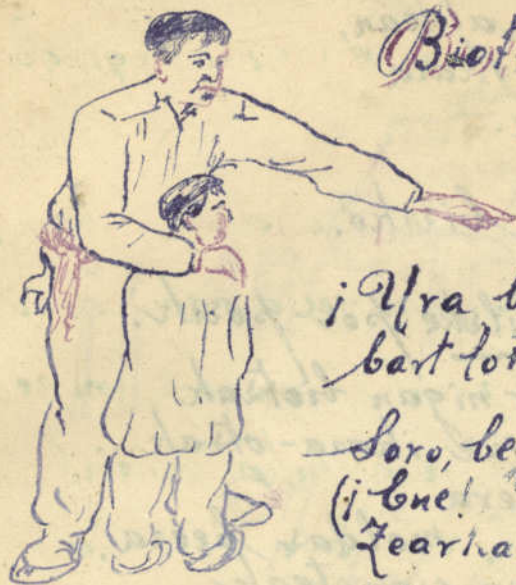 Biot
¡Ura b
bart lor
Soro, be
(¡ Ene!
Zearka